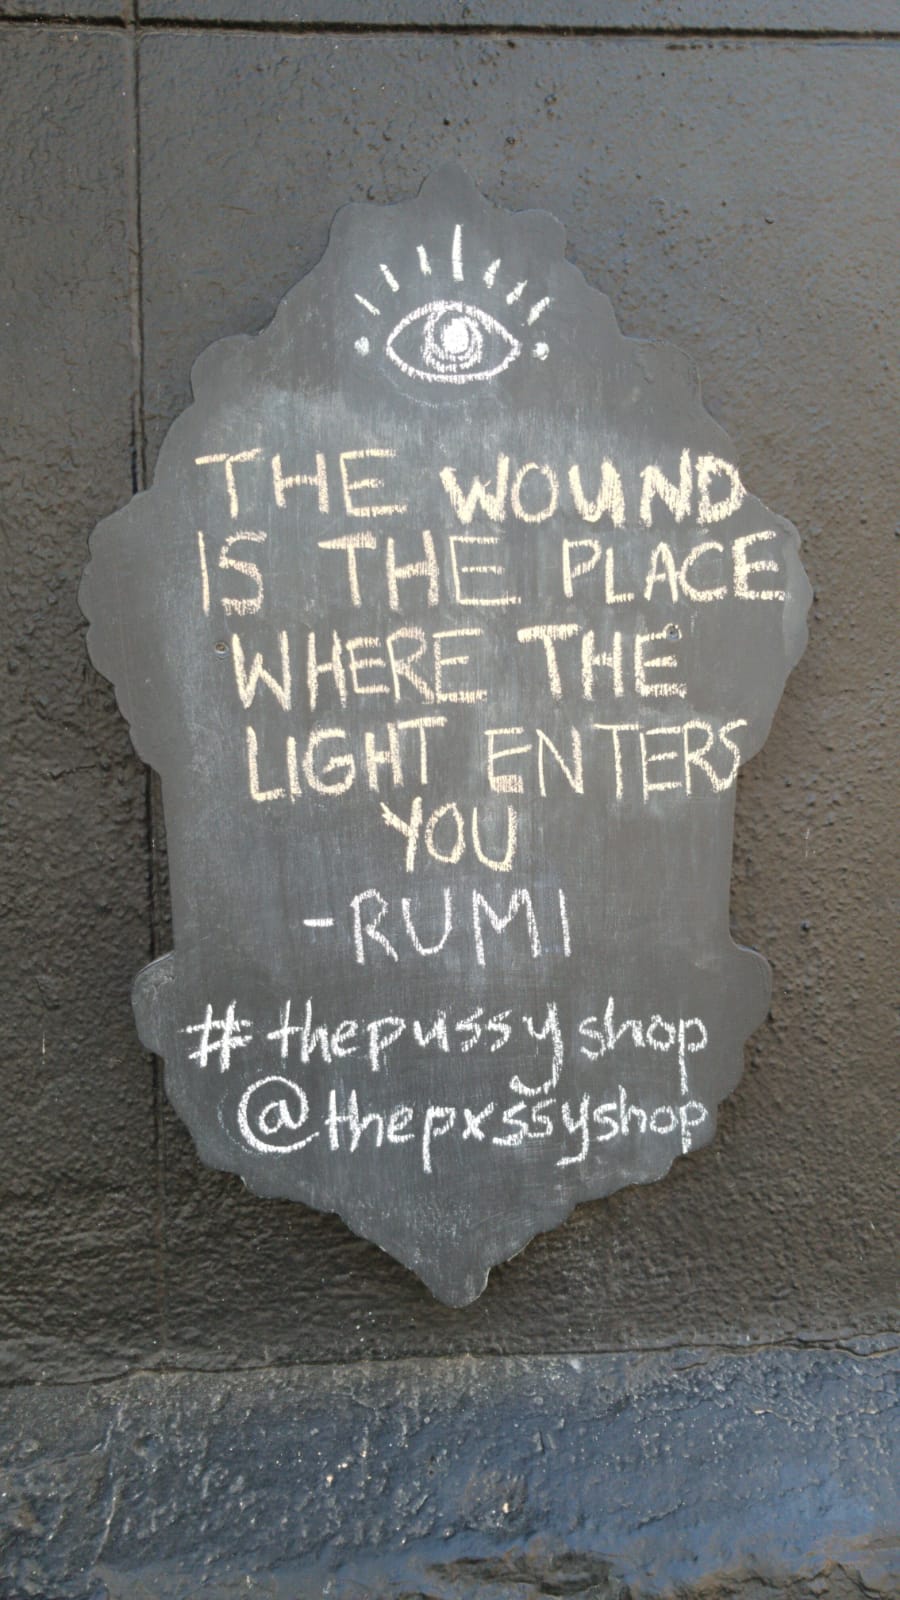 THE WOUND
IS THE PLACE
WHERE THE
LIGHT ENTERS
YOU
-RUMI
#thepussyshop
@thepxssyshop